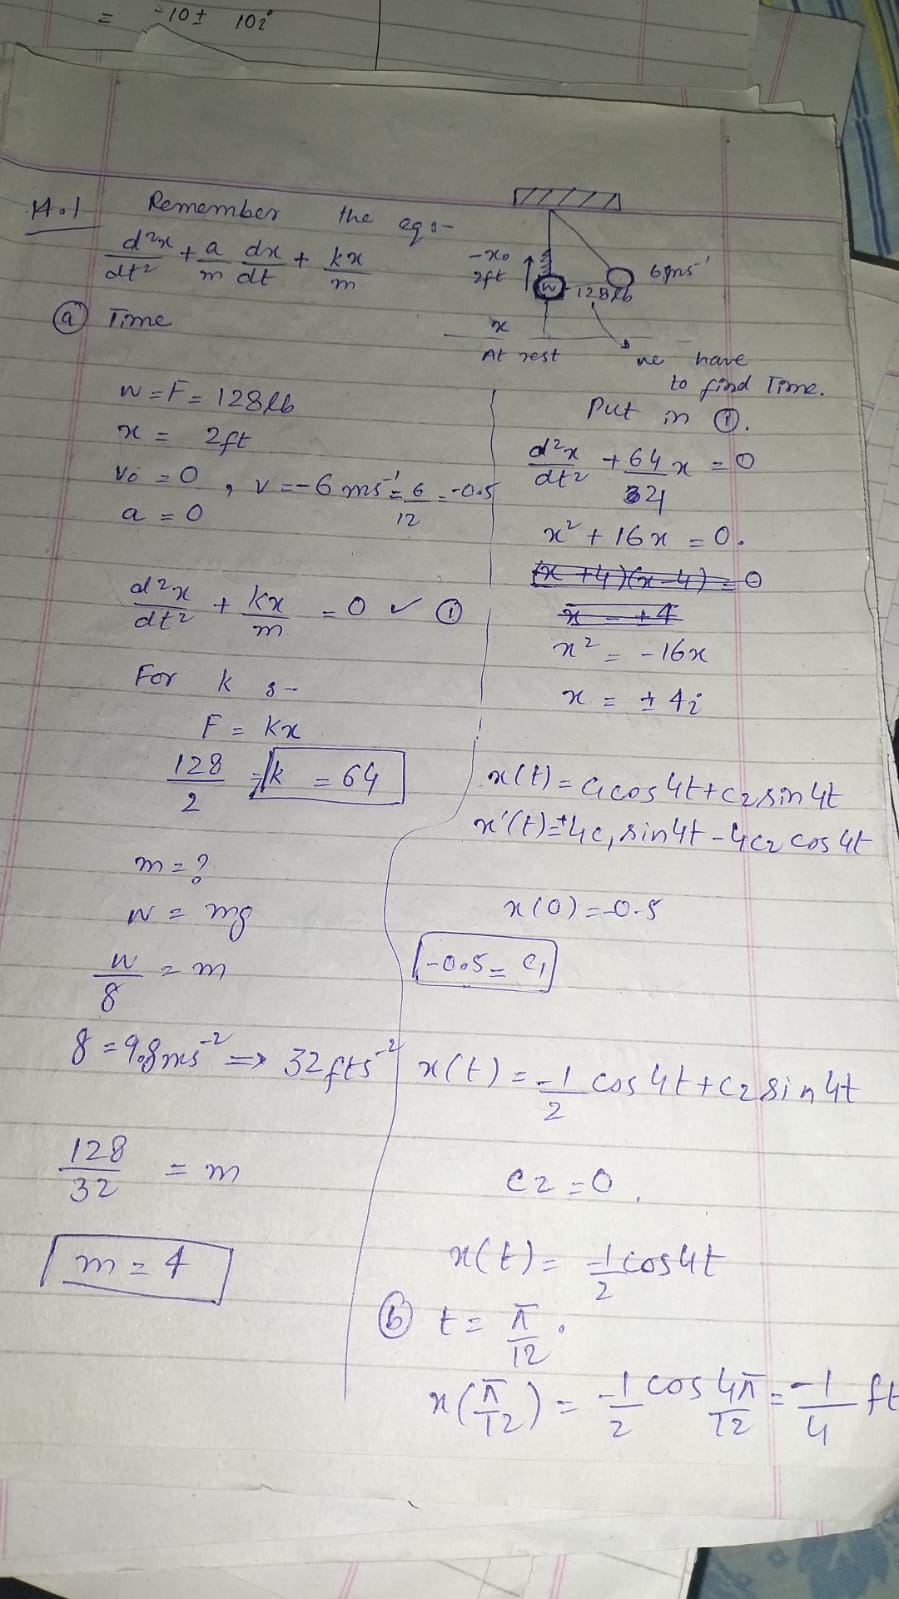 = -10 ± 10i
14.1 Remember the eq:-
d²x/dt² + a/m dx/dt + kx/m
-x₀
2ft
W
128lb
6ms⁻¹
x
At rest
we have
to find Time.
(a) Time
W = F = 128lb
x = 2ft
v₀ = 0, v = -6ms⁻¹ = 6/12 = -0.5
a = 0
d²x/dt² + kx/m = 0 ✓ (1)
For k :-
F = kx
128/2 = k = 64
m = ?
w = mg
w/g = m
g = 9.8ms⁻² => 32fts⁻²
128/32 = m
m = 4
Put in (1).
d²x/dt² + 64/4 x = 0
x² + 16x = 0.
(x+4)(x-4) = 0
x = ±4
x² = -16x
x = ±4i
x(t) = c₁cos4t + c₂sin4t
x'(t) = +4c₁sin4t - 4c₂cos4t
x(0) = -0.5
-0.5 = c₁
x(t) = -1/2 cos4t + c₂sin4t
c₂ = 0.
x(t) = -1/2 cos4t
(b) t = π/12.
x(π/12) = -1/2 cos 4π/12 = -1/4 ft